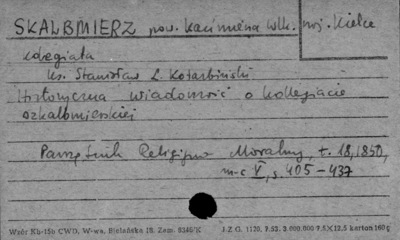 SKALBMIERZ pow. Kazimierza Wlk. woj. Kielce
kolegiata
ks. Stanisław L. Kotarbiński
Historyczna wiadomość o kollegiacie
szkalbmierskiej
Pamiętnik Religijno Moralny, t. 18, 1850,
m-c V, s. 405-437
Wzór Kb-15b CWD, W-wa, Bielańska 18. Zam. 8346/K J.Z.G. 1130. 7.53. 3.000.000 7.5X12,5 karton 160 g